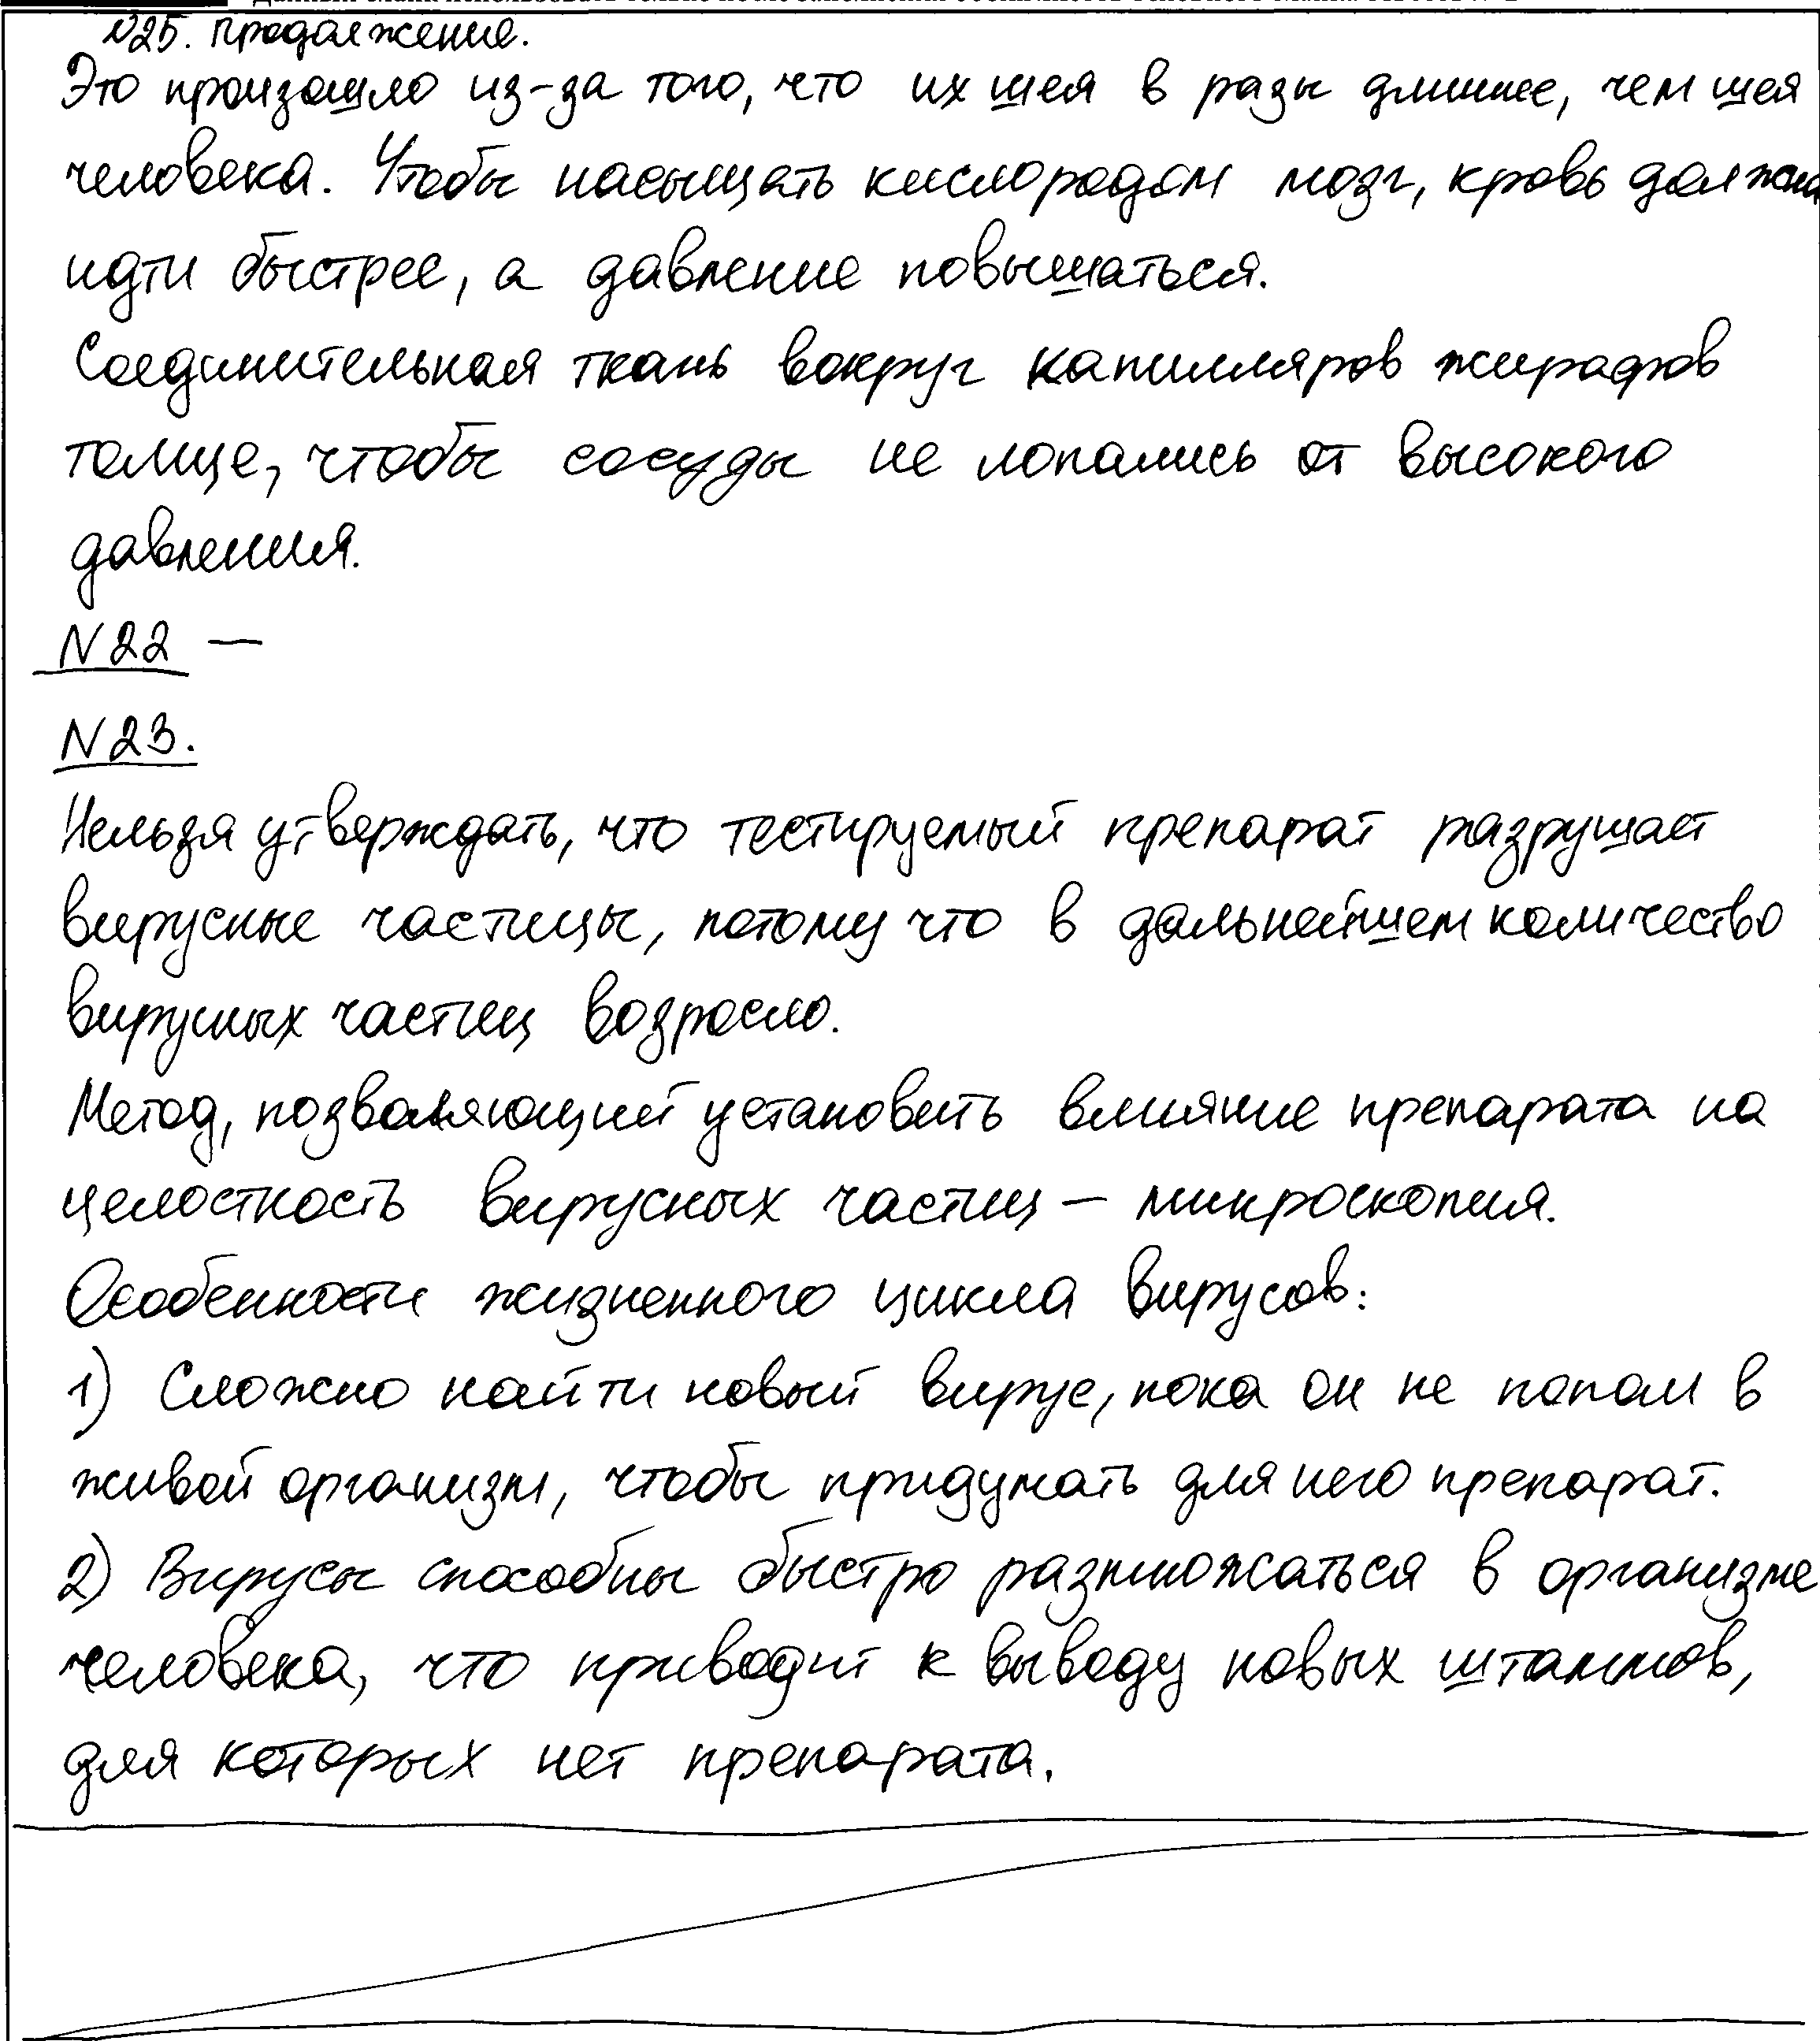 №25. Продолжение.
Это произошло из-за того, что их шея в разы длиннее, чем шея
человека. Чтобы насыщать кислородом мозг, кровь должна
идти быстрее, а давление повышаться.
Соединительная ткань вокруг капилляров жирафов
толще, чтобы сосуды не лопались от высокого
давления.
N22 —
N23.
Нельзя утверждать, что тестируемый препарат разрушает
вирусные частицы, потому что в дальнейшем количество
вирусных частиц возросло.
Метод, позволяющий установить влияние препарата на
целостность вирусных частиц – микроскопия.
Особенности жизненного цикла вирусов:
1) Сложно найти новый вирус, пока он не попал в
живой организм, чтобы придумать для него препарат.
2) Вирусы способны быстро размножаться в организме
человека, что приводит к выводу новых штаммов,
для которых нет препарата.